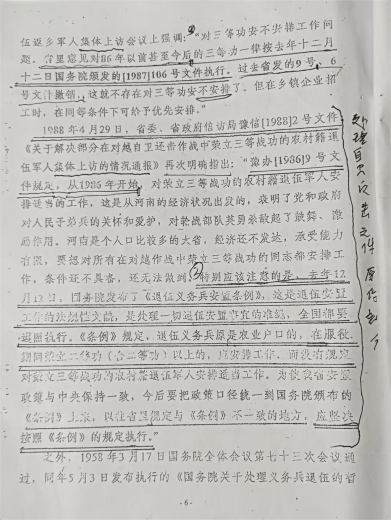 伍返乡军人集体上访会议上强调："对三等功安不安排工作问
题。省里意见对86年以前甚至今后的三等功一律按去年十二月
十二日国务院颁发的[1987]106号文件执行。过去省发的9号、6
号文件撤销。这就不存在对三等功安不安排了。但在乡镇企业招
工时，在同等条件下可给予优先安排。"
1988年4月29日，省委、省政府信访局豫信[1988]2号文件
《关于解决部分在对越自卫还击作战中荣立三等战功的农村籍退
伍军人集体上访的情况通报》再次明确指出："豫办[1986]9号文
件规定，从1986年开始，对荣立三等战功的农村籍退伍军人安
排适当的工作，这是从河南的经济状况出发的，表明了党和政府
对人民子弟兵的关怀和爱护，对老战部队英勇杀敌起了鼓舞、激
励作用。河南是个人口比较多的大省，经济还不发达，承受能力
有限，要想对所有在对越作战中荣立三等战功的同志都安排工
作，条件还不具备，还无法做到。②特别应该注意的是，去年12
月12日，国务院发布了《退伍义务兵安置条例》，这是退伍安置
工作的法规性文献，是处理一切退伍安置事宜的准绳，全国都要
遵照执行。《条例》规定，退伍义务兵原是农业户口的，在服役
期间荣立二等功（含二等功）以上的，应安排工作。而没有规定
对荣立三等战功的农村籍退伍军人安排适当工作。为使我省安置
政策与中央保持一致，今后要把政策口径统一到国务院颁布的
《条例》上来，以往省里规定与《条例》不一致的地方，应坚决
按照《条例》的规定执行。"
之外，1958年3月17日国务院全体会议第七十三次会议通
过，同年5月3日发布执行的《国务院关于处理义务兵退伍的暂
-6-